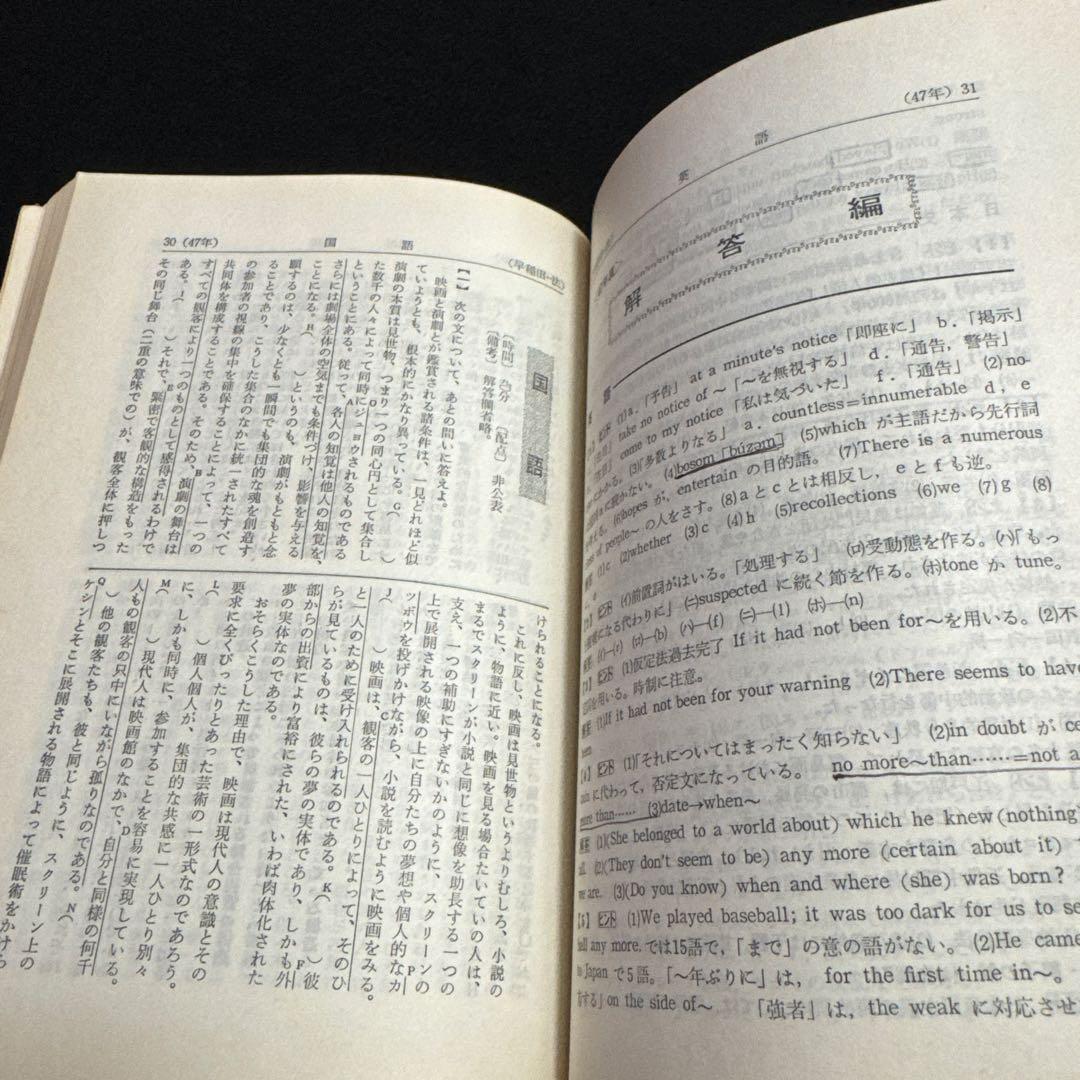 30 (47年)
国語
(早稲田・法)
国語
〔時間〕 〔配点〕 非公表
〔備考〕 解答欄省略。
【一】 次の文について、あとの問いに答えよ。
映画と演劇とが鑑賞される諸条件は、一見どれほど似
ていようとも、根本的にかなり異っている。G(　　)
演劇の本質は見世物、つまり一つの同心円として集合し
た数千の人々によって同時にジュヨウされるものである
ということにある。従って、各人の知覚は他人の知覚を、
さらには劇場全体の空気までも条件づけ、影響を与える
ことになる。H(　　)というのも、演劇がもともと念
願するのは、少なくとも一瞬間でも集団的な魂を創造す
ることであり、こうした集合のなかに統一されたすべて
の参加者の視線の集中を確保することによって、一つの
共同体を構成することである。そのため、演劇の舞台は
すべての観客により一つのものとして感得されるわけで
ある。I(　　)それで、緊密で客観的な構造をもった
その同じ舞台(二重の意味での)が、観客全体に押しつ
けられることになる。
これに反し、映画は見世物というよりむしろ、小説の
ように、物語に近い。映画を見る場合たいていの人は、
まるでスクリーンが小説と同じに想像を助長する一つの
支え、一つの補助にすぎないかのように、スクリーンの
上で展開される映像の上に自分たちの夢想や個人的なカ
ツボウを投げかけながら、小説を読むように映画をみる。
J(　　)映画は、観客の一人ひとりによって、そのひ
と一人のために受け入れられるのである。K(　　)彼
らが見ているものは、彼らの夢の実体であり、しかも外
部からの出資により富裕にされた、いわば肉体化された
夢の実体なのである。
おそらくこうした理由で、映画は現代人の意識とその
要求に全くぴったりとあった芸術の一形式なのであろう。
L(　　)個人個人が、集団的な共感に一人ひとり別々
に、しかも同時に、参加することを容易に実現している。
M(　　)現代人は映画館のなかで、自分と同様の何千
人もの観客の只中にいながら孤りなのである。N(　　
)他の観客たちも、彼と同じように、スクリーン上の
ケシンとそこに展開される物語によって催眠術をかけら
(47年) 31
英語
解答編
語
(1)a.「予告」 at a minute's notice「即座に」 b.「掲示」
take no notice of～「～を無視する」 d.「通告, 警告」
come to my notice「私は気づいた」 f.「通告」 (2)no-
(3)「多数よりなる」 a. countless=innumerable d, e
にかかる。 (4)bosom [búzəm] (5)which が主語だから先行詞
に続かない。 (6)hopes が, entertain の目的語。 (7)There is a numerous
of people～ の人をさす。 (8)a と c とは相反し, e と f も逆。
(1)c (2)whether (3)c (4)h (5)recollections (6)we (7)g (8)
ヒント (イ)前置詞がはいる。「処理する」 (ロ)受動態を作る。 (ハ)「もっ
になる代わりに」 (ニ)suspected に続く節を作る。 (ホ)tone か tune。
(イ)—(r) (ロ)—(b) (ハ)—(f) (ニ)—(l) (ホ)—(n)
ヒント (1)仮定法過去完了 If it had not been for～を用いる。 (2)不
を用いる。時制に注意。
(1)If it had not been for your warning (2)There seems to have
【4】 ヒント (1)「それについてはまったく知らない」 (2)in doubt が ce
に代わって, 否定文になっている。 no more～than……=not a
more than…… (3)date→when～
解答 (1)(She belonged to a world about) which he knew (nothing)
(2)(They don't seem to be) any more (certain about it)
we are. (3)(Do you know) when and where (she) was born?
【5】 ヒント (1)We played baseball; it was too dark for us to se
ball any more. では15語で,「まで」の意の語がない。 (2)He came
to Japan で5語。「～年ぶりに」は, for the first time in～。
する」on the side of～ 「強者」は, the weak に対応させ